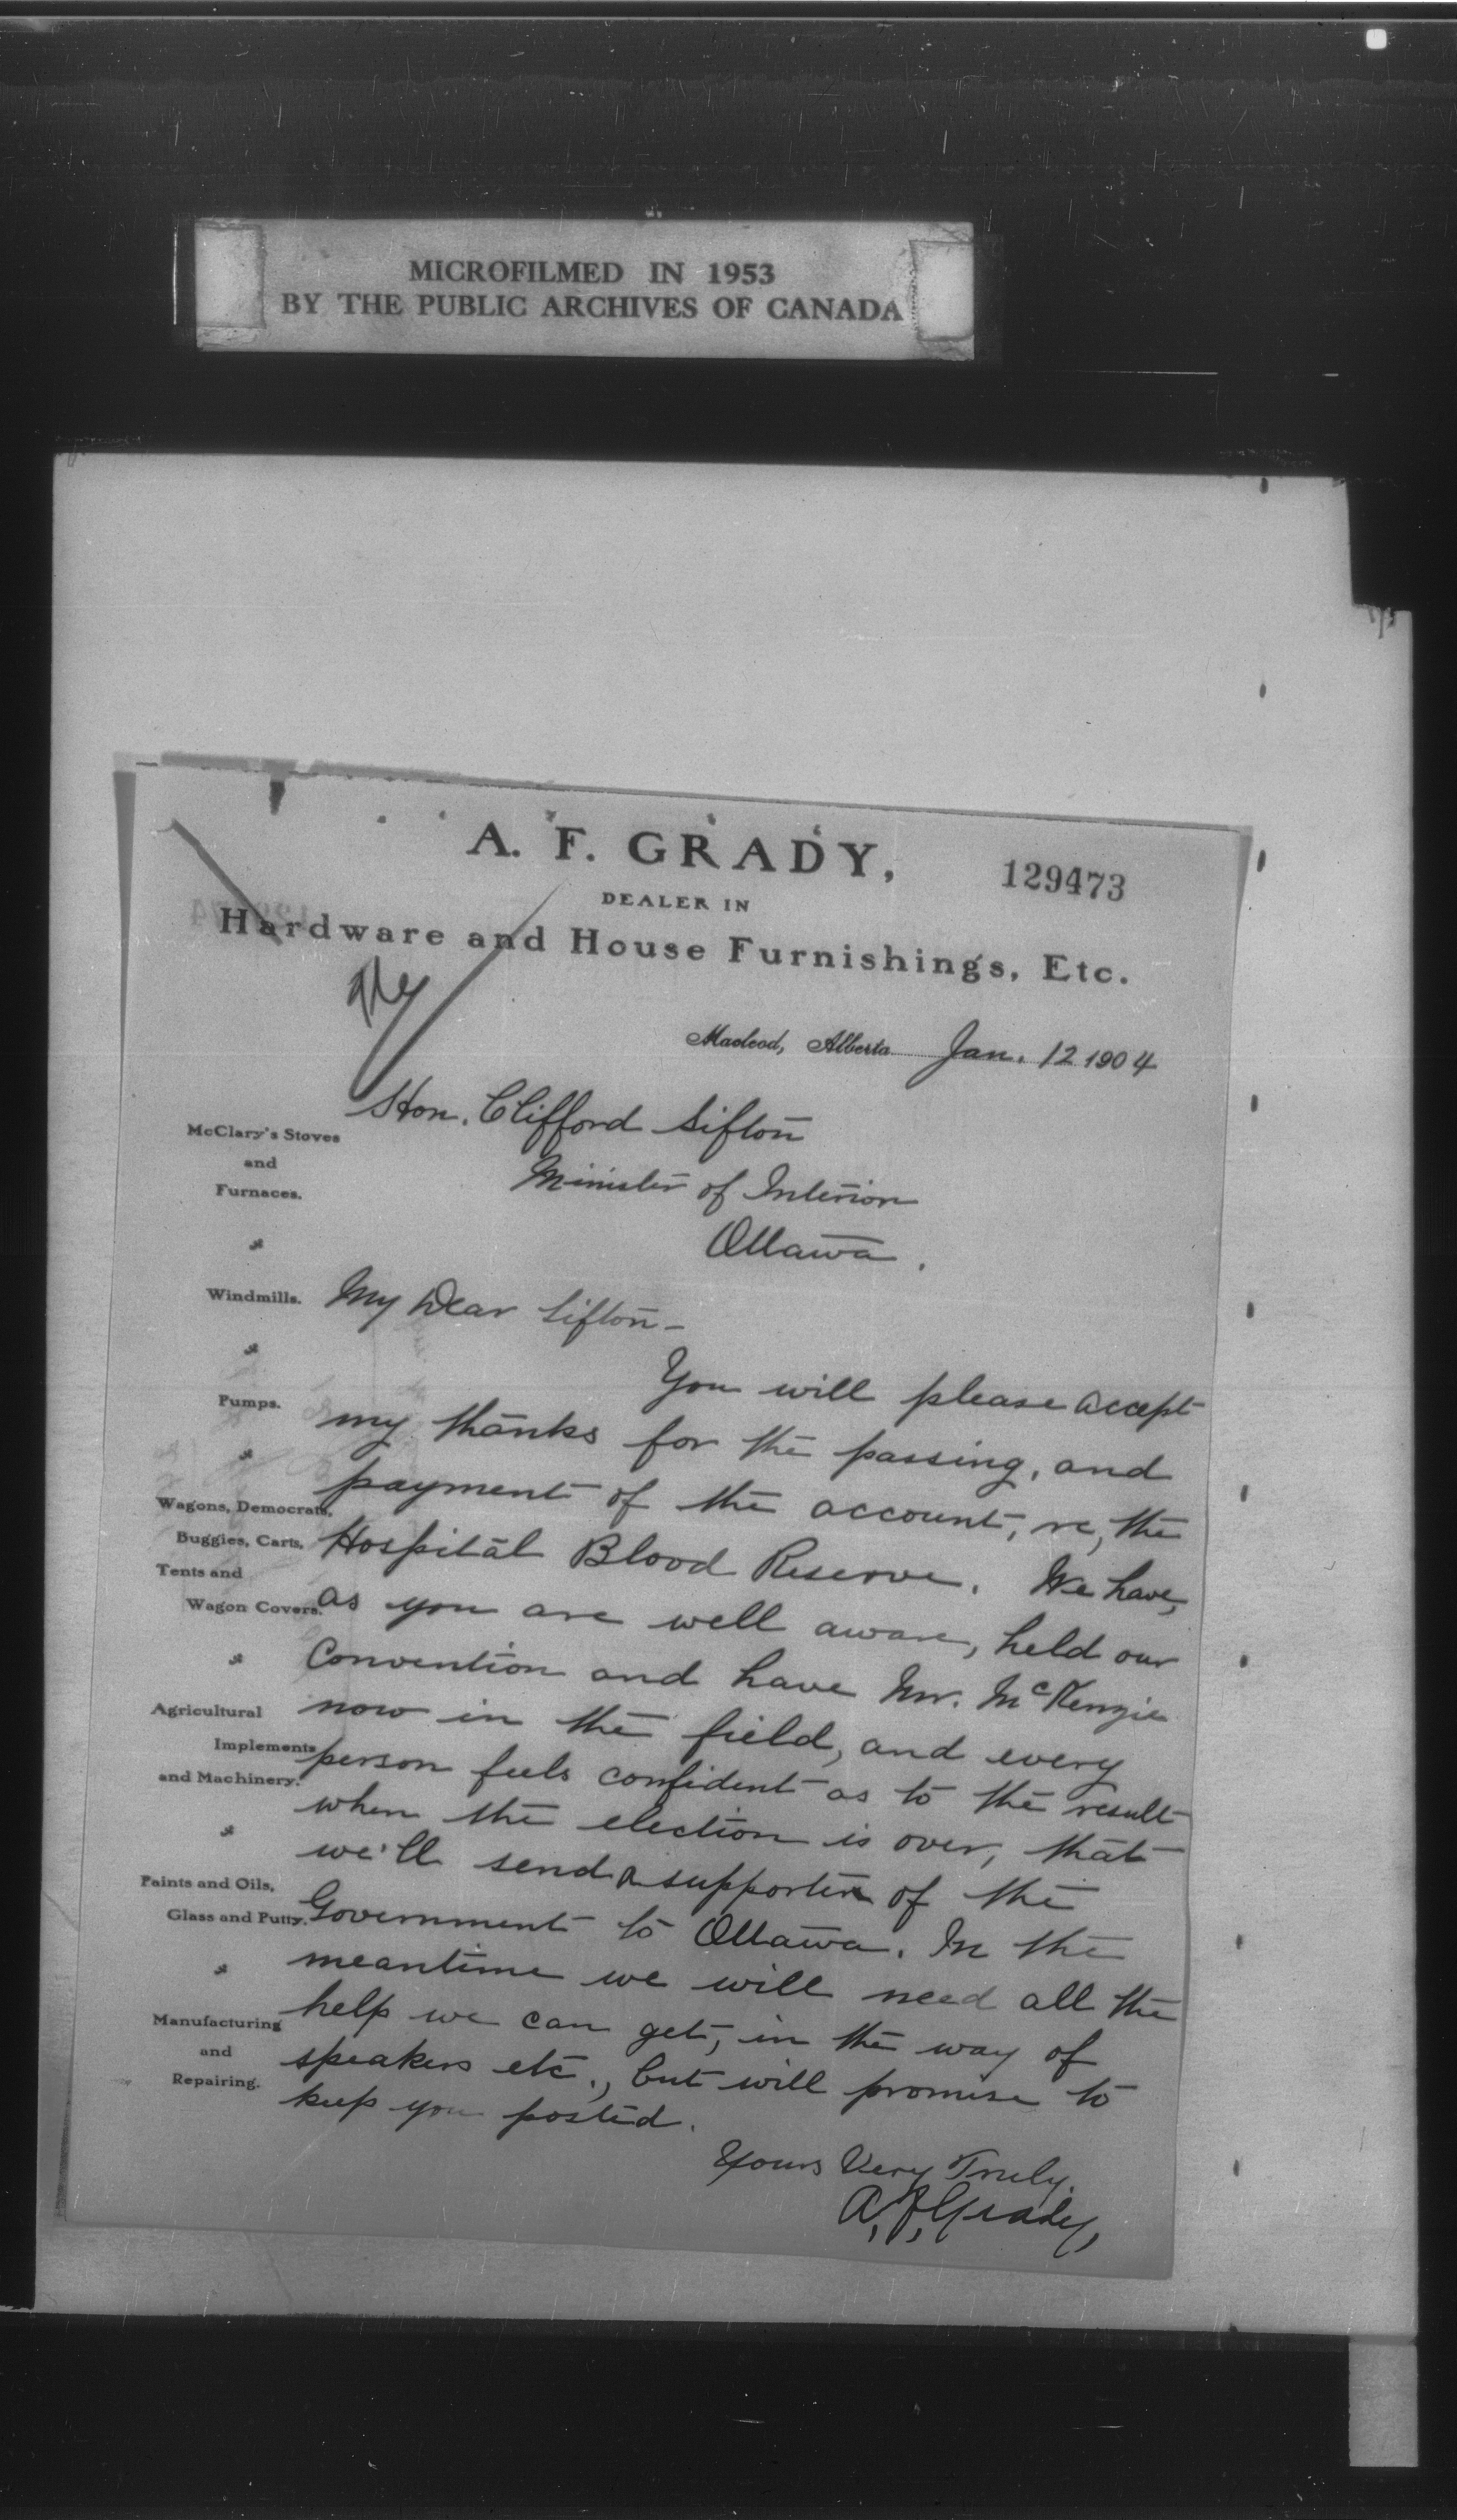 MICROFILMED IN 1953
BY THE PUBLIC ARCHIVES OF CANADA
A. F. GRADY,
129473
DEALER IN
Hardware and House Furnishings, Etc.
Macleod, Alberta Jan. 12 1904
Hon. Clifford Sifton
Minister of Interior
Ottawa.
McClary's Stoves
and
Furnaces.
Windmills.
Pumps.
Wagons, Democrats,
Buggies, Carts,
Tents and
Wagon Covers.
Agricultural
Implements
and Machinery.
Paints and Oils,
Glass and Putty.
Manufacturing
and
Repairing.
My Dear Sifton-
You will please accept
my thanks for the passing, and
payment of the account, re, the
Hospital Blood Reserve. We have,
as you are well aware, held our
Convention and have Mr. McKenzie
now in the field, and every
person feels confident as to the result
when the election is over, that
we'll send a supporter of the
Government to Ottawa. In the
meantime we will need all the
help we can get, in the way of
speakers etc., but will promise to
keep you posted.
Yours Very Truly,
A. F. Grady,